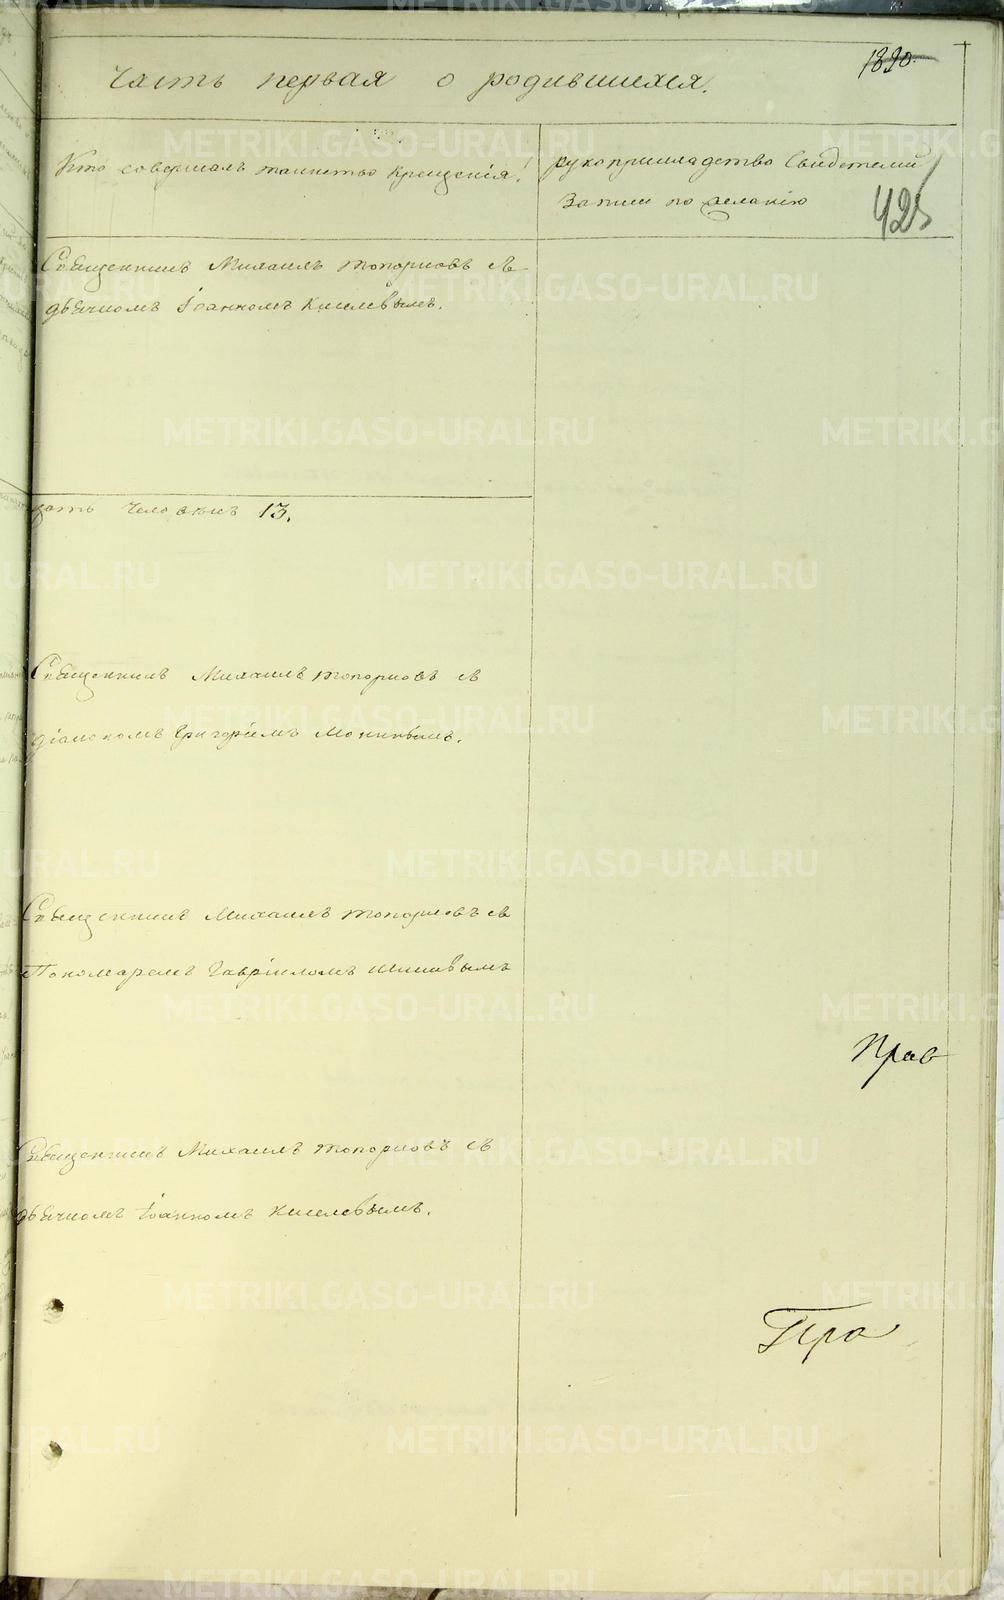 1890.
Часть первая о родившихся.
Кто совершалъ таинство крещенія!
рукоприкладство свидетелей
записи по желанію
425
Священникъ Михаилъ Топорковъ съ
дьячкомъ Іоанномъ Киселевымъ.
цать человекъ 13.
Священникъ Михаилъ Топорковъ съ
діакономъ Григоріемъ Мокинымъ.
Священникъ Михаилъ Топорковъ съ
Пономаремъ Гавріиломъ Шишовымъ
Прав
Священникъ Михаилъ Топорковъ съ
дьячкомъ Іоанномъ Киселевымъ.
Про
METRIKI.GASO-URAL.RU